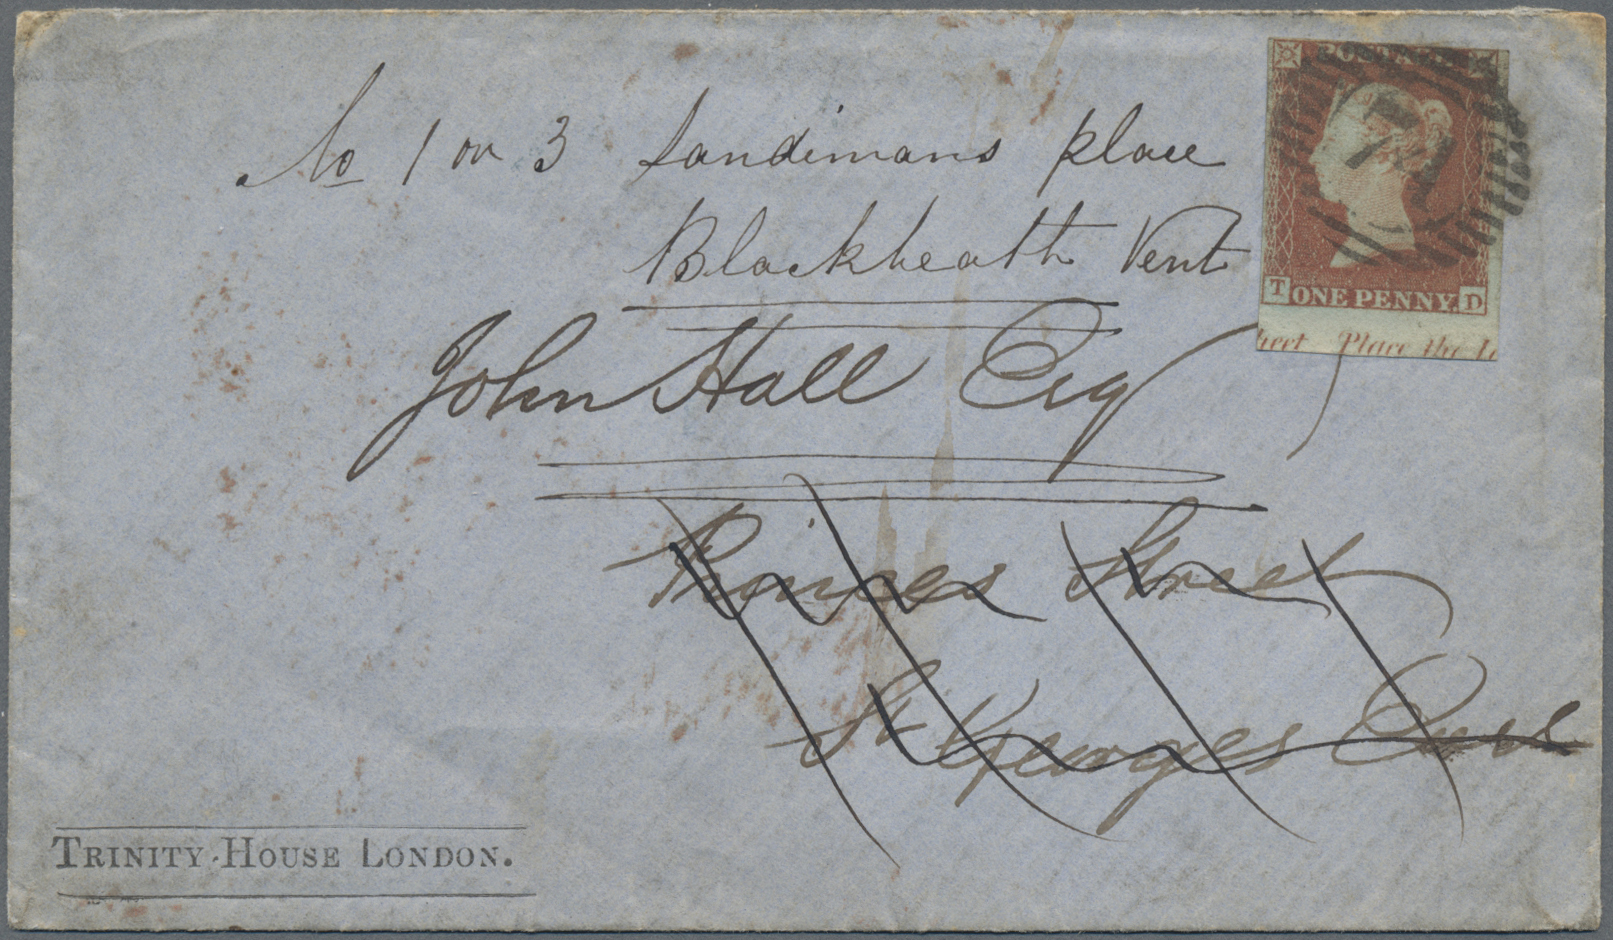 No 1 or 3 Sandimans place
Blackheath Vent
John Hall Esq
Princes Street
St Georges
TRINITY-HOUSE LONDON.
POSTAGE
T ONE PENNY. D
heet Place the L